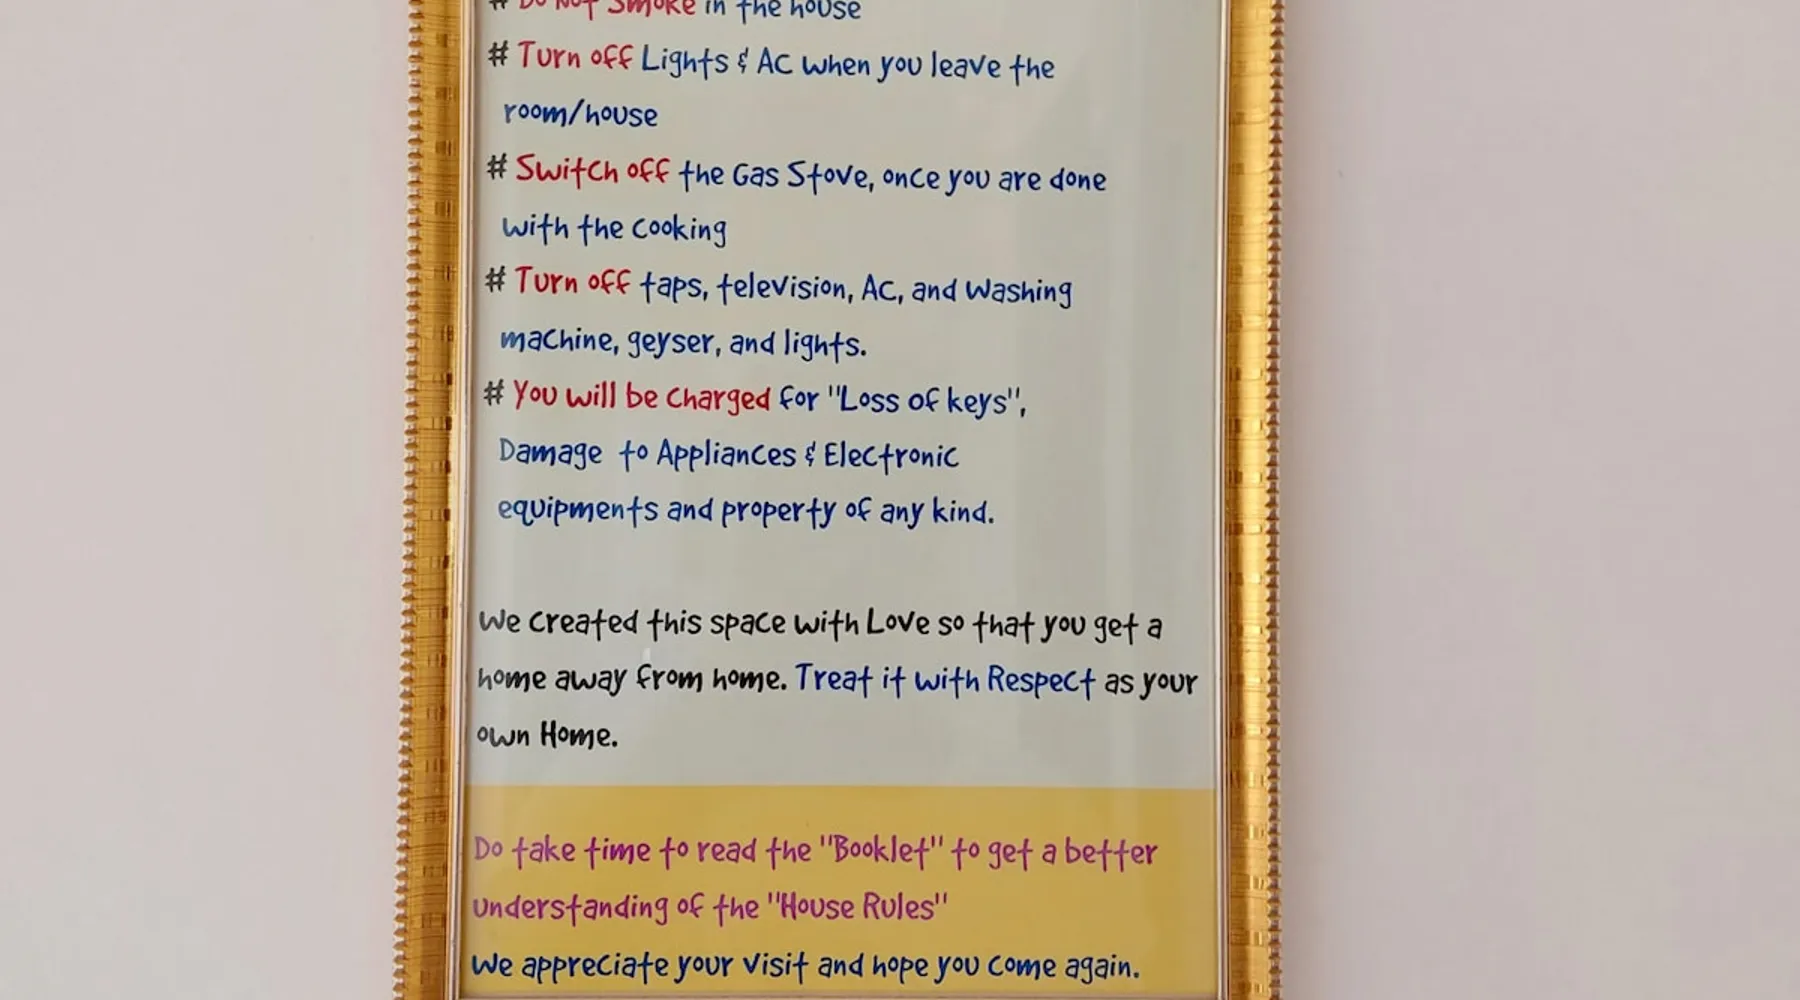 # Do Not Smoke in the house
# Turn off Lights & AC when you leave the
room/house
# Switch off the Gas Stove, once you are done
with the cooking
# Turn off taps, television, AC, and Washing
machine, geyser, and lights.
# You will be charged for "Loss of keys",
Damage to Appliances & Electronic
equipments and property of any kind.
We created this space with Love so that you get a
home away from home. Treat it with Respect as your
own Home.
Do take time to read the "Booklet" to get a better
understanding of the "House Rules"
We appreciate your visit and hope you come again.